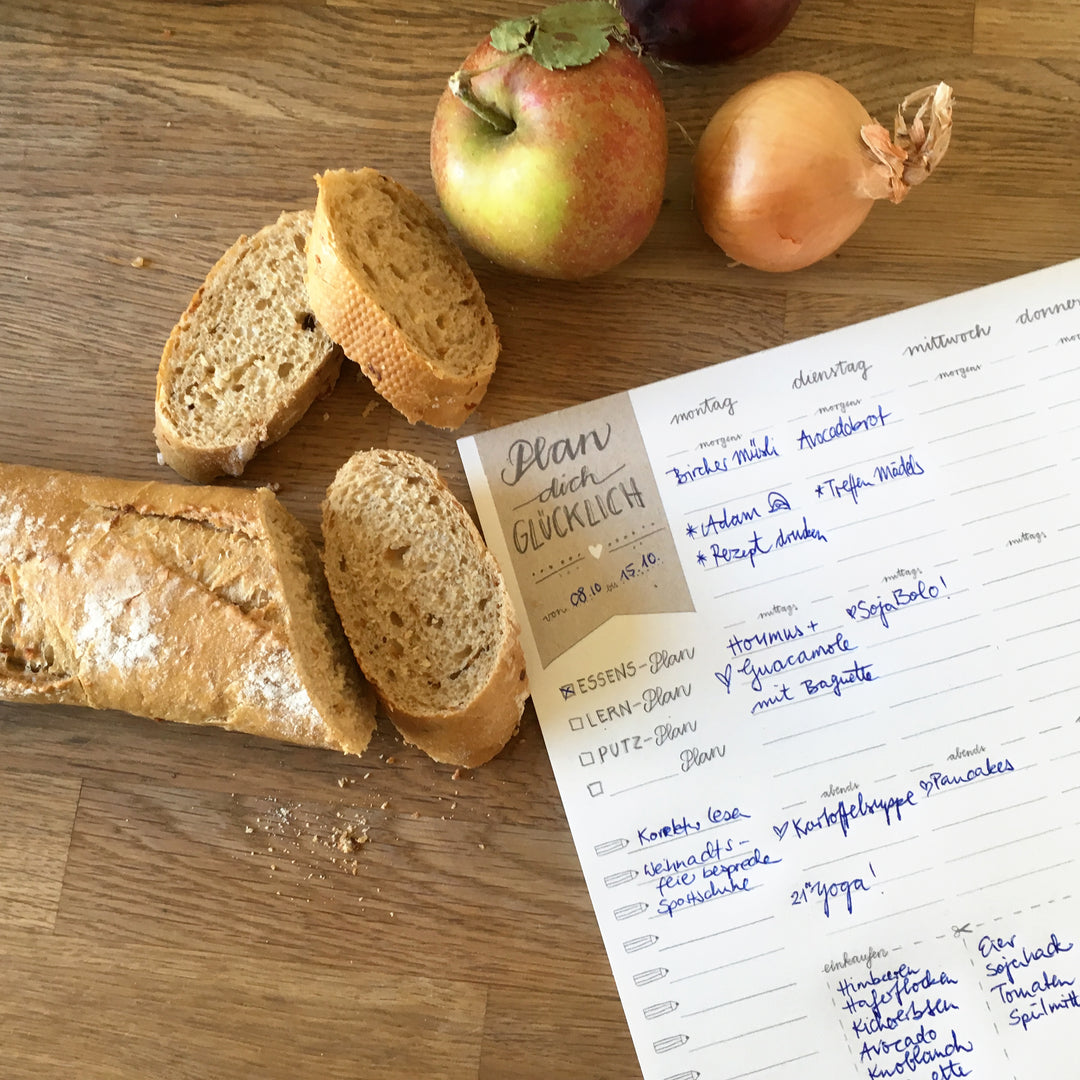 Plan
dich
GLÜCKLICH
von 08.10 bis 15.10.
ESSENS-Plan
LERN-Plan
PUTZ-Plan
Plan
Korrektur lesen
Weihnachts-
feier besprechen
Sportschuhe
montag
morgens
Bircher Müsli
*Adam
*Rezept drucken
mittags
Houmus +
Guacamole
mit Baguette
abends
Kartoffelsuppe
21 Yoga!
dienstag
morgens
Avocadobrot
*Treffen Mädels
mittags
SojaBolo!
abends
Pancakes
mittwoch
morgens
mittags
donner
mor
einkaufen
Himbeeren
Haferflocken
Kichererbsen
Avocado
Knoblauch
ette
Eier
Sojahack
Tomaten
Spülmitt